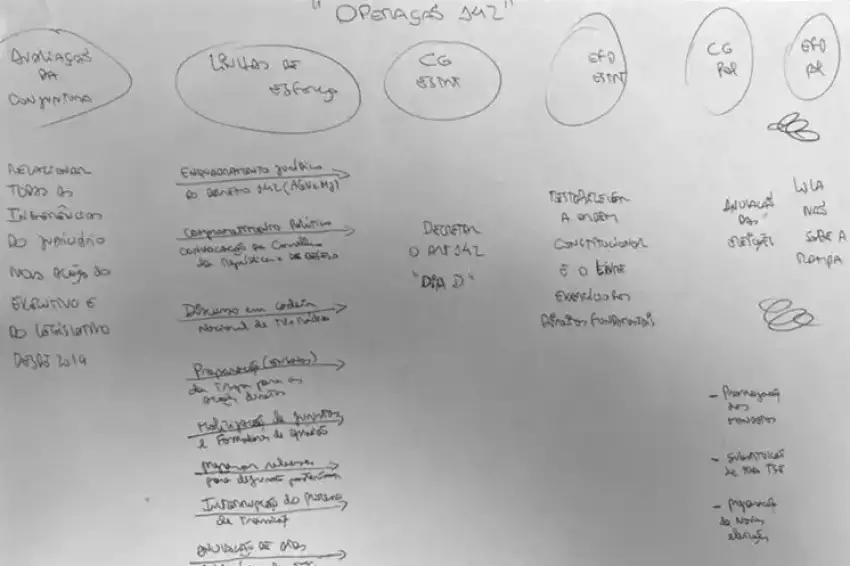 "OPERAÇÃO 142"
AVALIAÇÃO
DA
CONJUNTURA
LINHAS DE
ESFORÇO
CG
ESTRT
EFD
ESTRT
CG
POL
EFD
POL
RELACIONAR
TODAS AS
INTERFERÊNCIAS
DO JUDICIÁRIO
NAS AÇÃO DO
EXECUTIVO E
DO LEGISLATIVO
DESDE 2019
ENQUADRAMENTO JURÍDICO
DO DECRETO 142 (AGU e MJ)
Comprometimento Político
CONVOCAÇÃO do Conselho
da República e DE DEFESA
Discurso em cadeia
Nacional de TV e Rádio
Preparação
da Tropa para as
ações diretas
Mobilização de juristas
e Formadores de opinião
para
INTERRUPÇÃO DO PROCESSO
de Transição
ANULAÇÃO DE ATOS
DECRETAR
O ART 142
"DIA D"
RESTABELECER
A ORDEM
CONSTITUCIONAL
E O LIVRE
EXERCÍCIO DOS
DIREITOS FUNDAMENTAIS
ANULAÇÃO
DAS
ELEIÇÕES
LULA
NÃO
SOBE A
RAMPA
- Prorrogação
dos
mandatos
- SUBSTITUIÇÃO
de todo TSE
- Preparação
de Novas
eleições